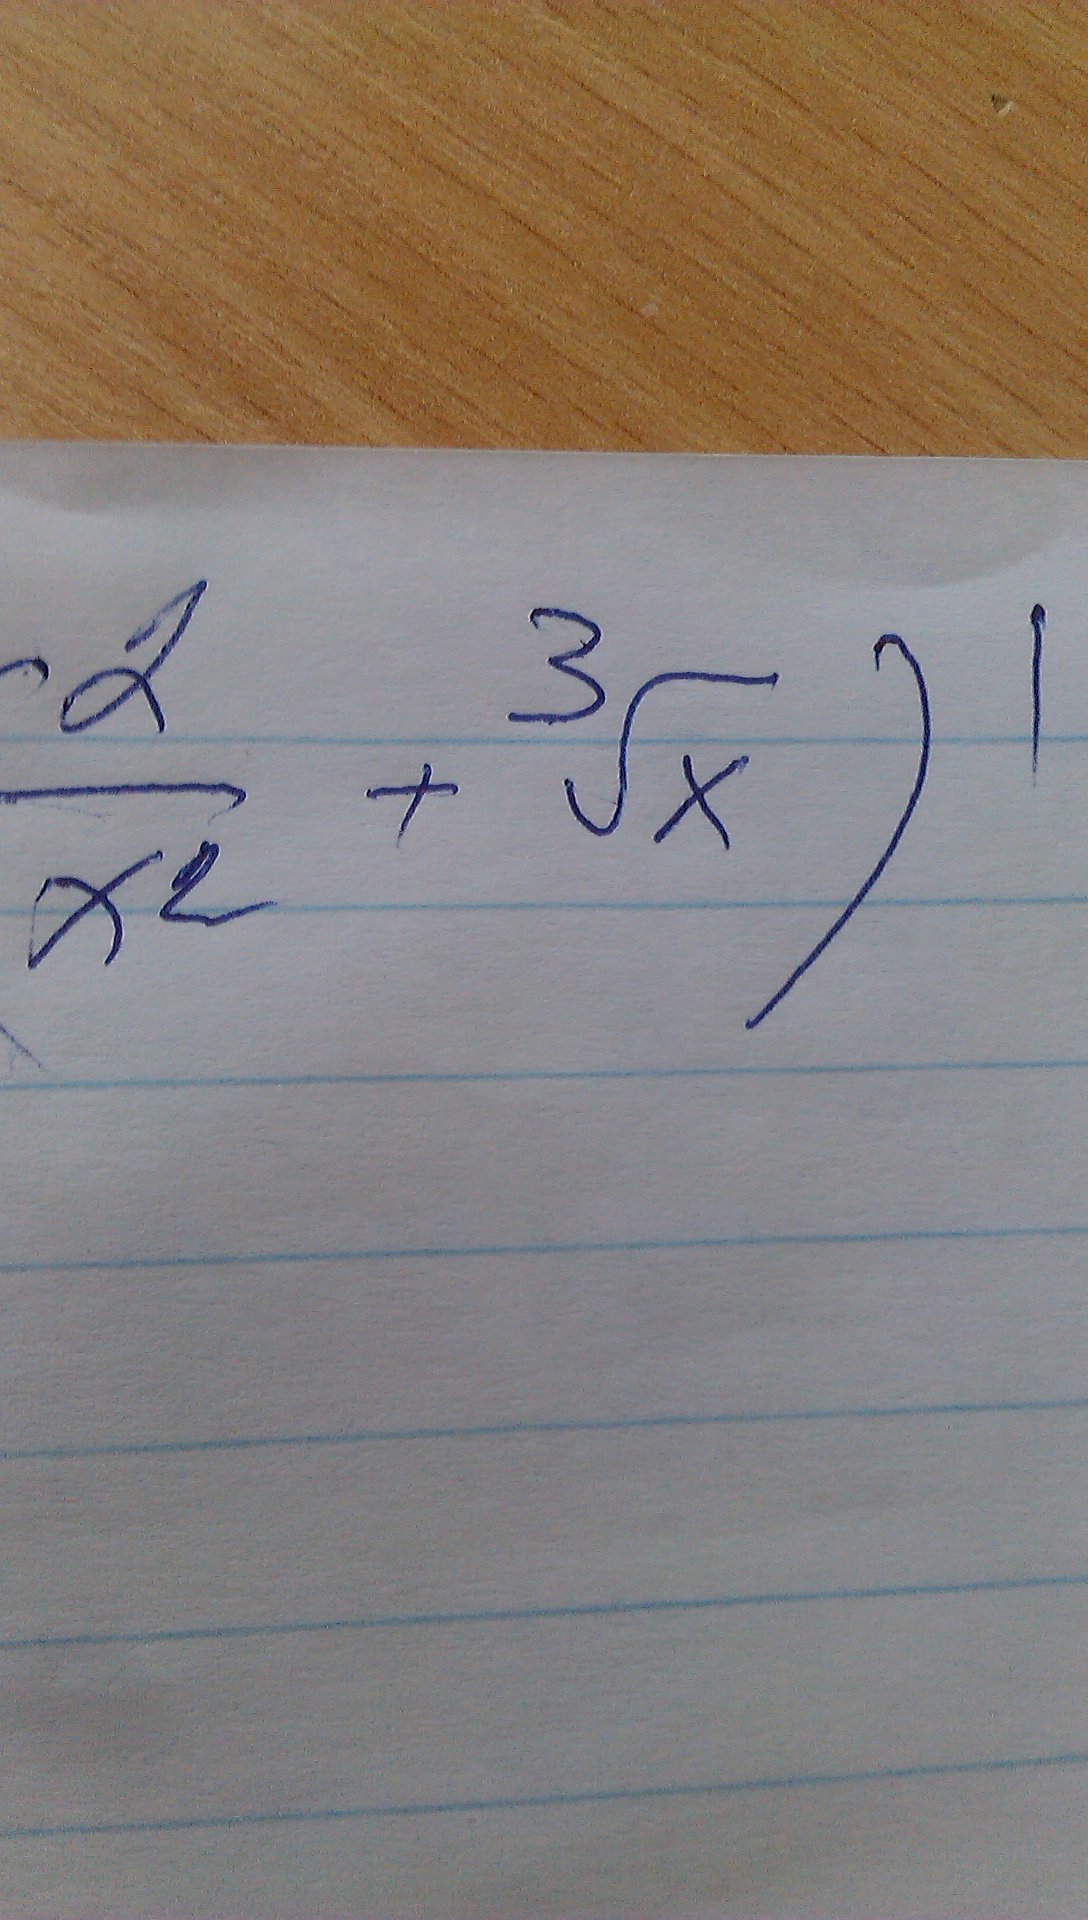 2
x² + ³√x ) |